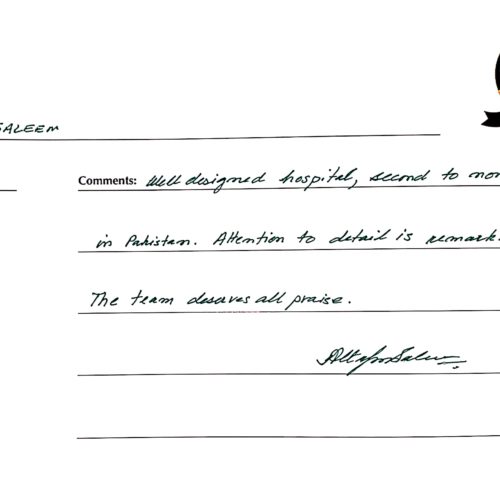 SALEEM
Comments: Well designed hospital, second to non
in Pakistan. Attention to detail is remark
The team deserves all praise.